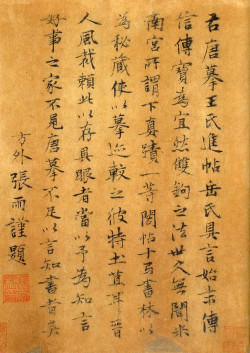 右唐摹王氏進帖岳氏具言始末傳
信傳寶為宜然雙鉤之法世久無聞米
南宮所謂下真蹟一等閣帖十馬書林以
為秘藏使以摹迹較之彼特土苴耳晉
人風裁賴此以存具眼者當以予為知言
好事之家不見唐摹不足以言知書者矣
方外張雨謹題